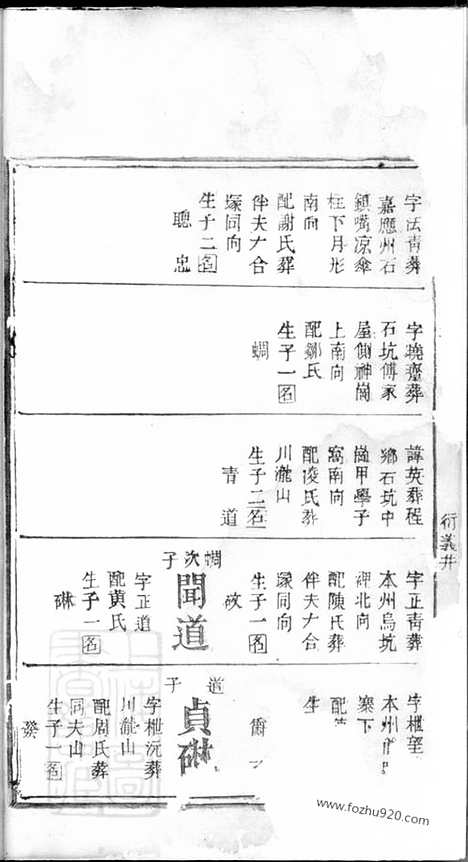 字法青葬
嘉應州石
鎮嘴凉傘
柱下月形
南向
配謝氏葬
伴夫大合
塚同向
生子二名
聰 忠
字曉齋葬
石坑傅家
屋側神崗
上南向
配鄒氏
生子一名
蜩
諱英葬程
鄉石坑中
崗甲學子
窩南向
配凌氏葬
川瀧山
生子二名
青 道
衍義井
字正青葬
本州烏坑
裡北向
配陳氏葬
伴夫大合
塚同向
生子一名
蜩次子
聞道
字正道
配黄氏
生子一名
碄
字櫆望
本州
寨下
配
生
道子
貞碄
字櫆沅葬
川瀧山
配周氏葬
同夫山
生子一名
發
www.fozhu920.com